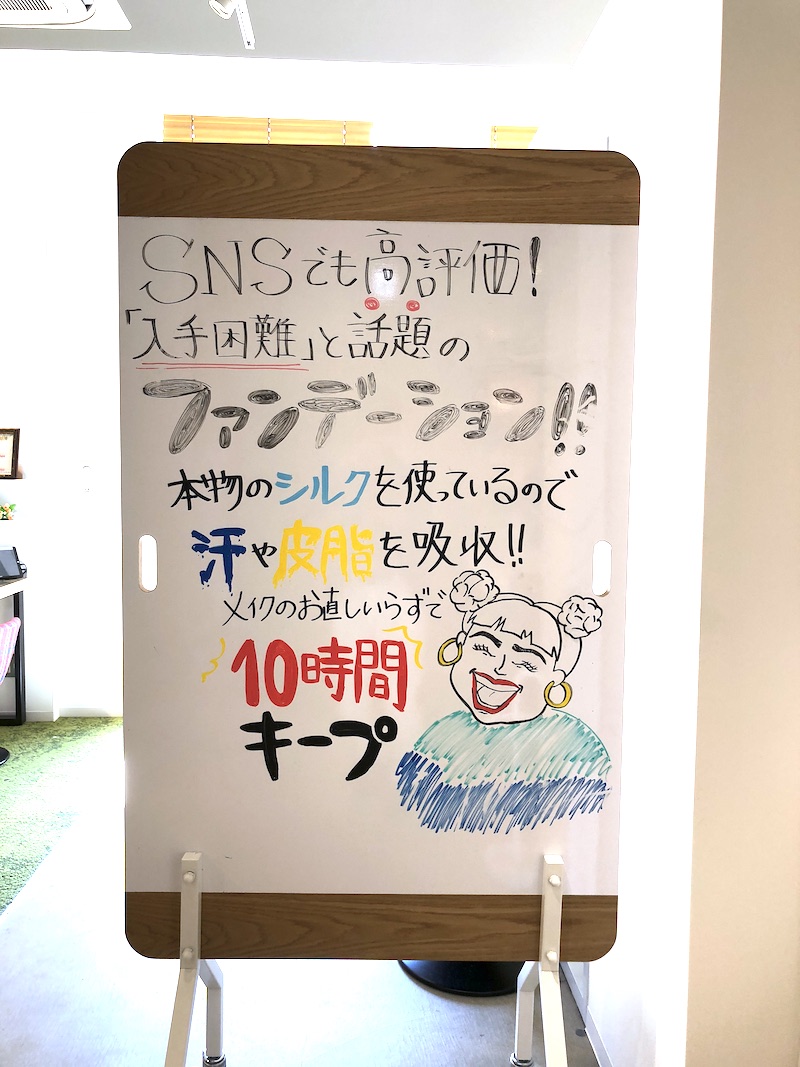 SNSでも高評価!
「入手困難」と話題の
ファンデーション!!
本物のシルクを使っているので
汗や皮脂を吸収!!
メイクのお直しいらずで
10時間
キープ